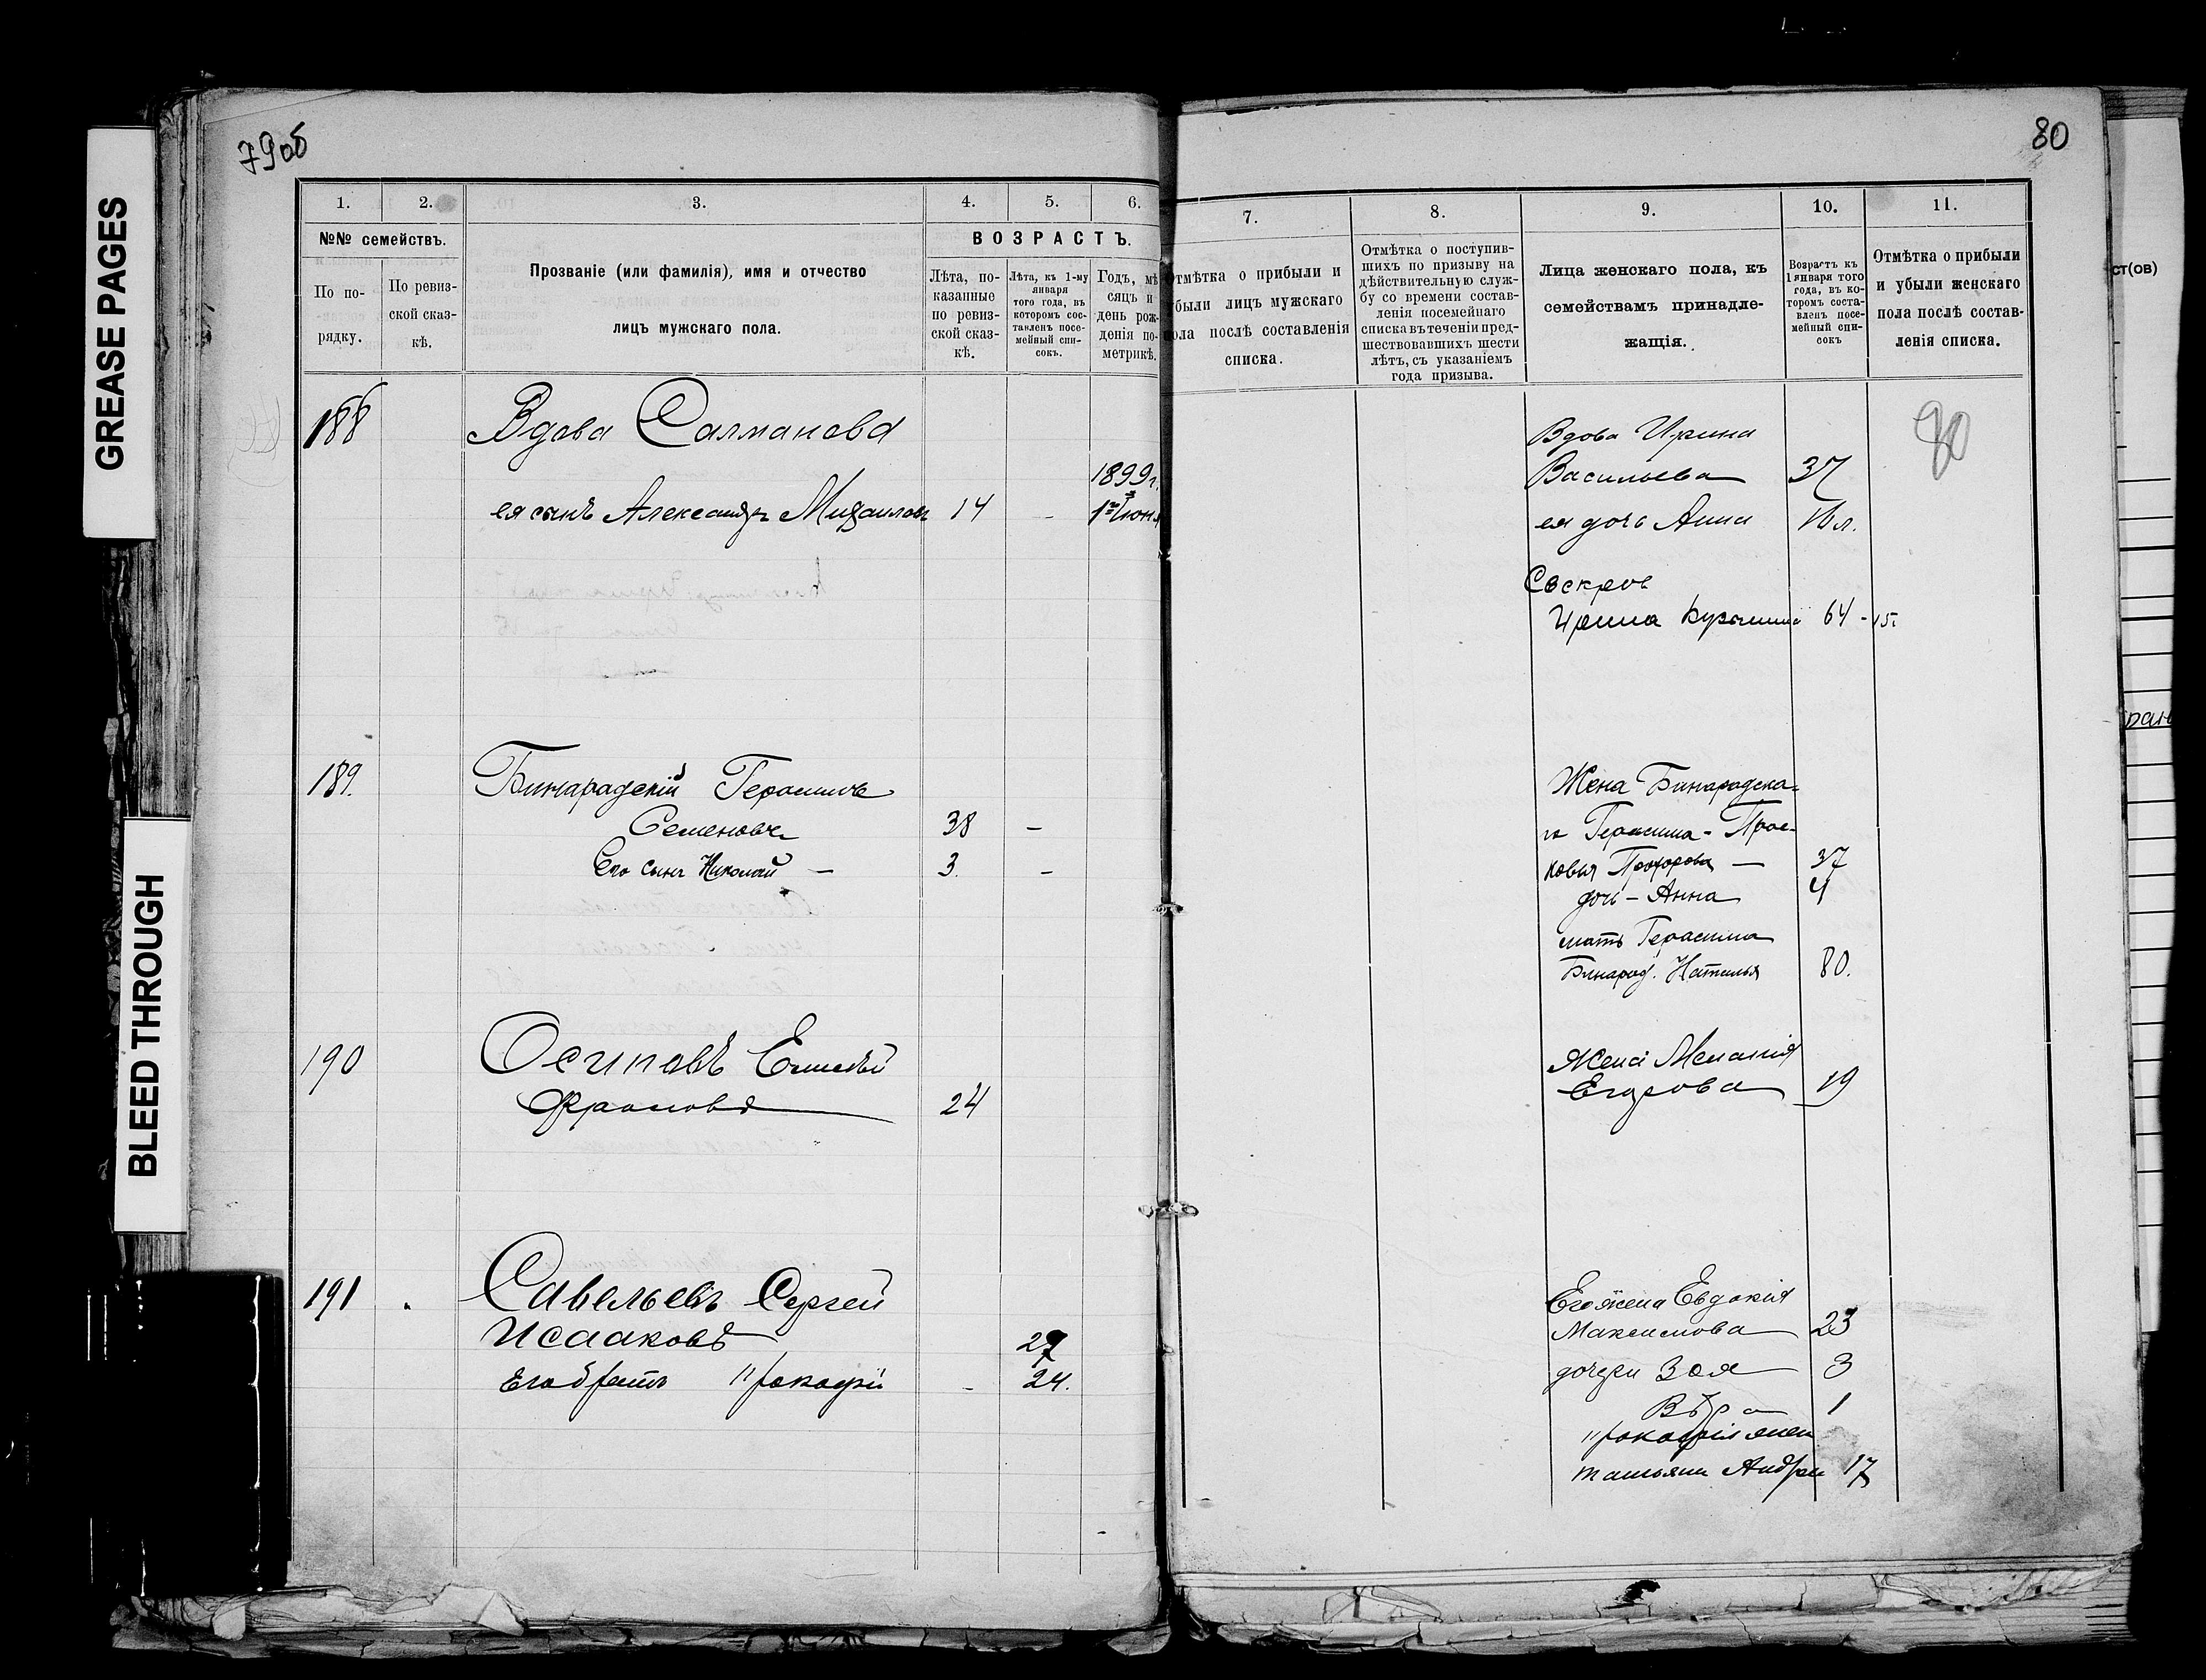 79об
80
GREASE PAGES
BLEED THROUGH
1.
2.
3.
4.
5.
6.
№№ семействъ.
По по-
рядку.
По ревиз-
ской сказ-
кѣ.
Прозваніе (или фамилія), имя и отчество
лицъ мужскаго пола.
ВОЗРАСТЪ.
Лѣта, по-
казанные
по ревиз-
ской сказ-
кѣ.
Лѣта, къ 1-му
января
того года, въ
которомъ сос-
тавленъ посе-
мейный спи-
сокъ.
Годъ, мѣ
сяцъ и
день рож-
денія по-
метрикѣ.
7.
8.
9.
10.
11.
тмѣтка о прибыли и
были лицъ мужскаго
ола послѣ составленія
списка.
Отмѣтка о поступив-
шихъ по призыву на
дѣйствительную служ-
бу со времени состав-
ленія посемейнаго
списка въ теченіи пред-
шествовавшихъ шести
лѣтъ, съ указаніемъ
года призыва.
Лица женскаго пола, къ
семействамъ принадле-
жащія.
Возрастъ къ
1 января того
года, въ ко-
торомъ соста-
вленъ посе-
мейный спи-
сокъ
Отмѣтка о прибыли
и убыли женскаго
пола послѣ состав-
ленія списка.
ст(ов)
188 Вдова Салманова
1899г.
ея сынъ Александръ Михаиловъ 14 - 1го Июня
Вдова Ирина
Васильева 37
ея дочь Анна
Свекровь
Ирина 64
80
189. Бинарадскій Герасимъ
Семеновъ 38 -
Его сынъ Николай - 3. -
Жена Бинарадска-
го Герасима - Прас-
ковья Прохорова - 37
дочь - Анна 4
мать Герасима
Бинарад. Наталья 80.
190 Осиповъ Елисѣй
Фроловъ 24
Жена Меланія
Егорова 19
191 Савельевъ Сергей
Исааковъ 27
Его братъ Прокофій - 24.
Его жена Евдокія
Максимова 23
дочери Зоя 3
Вѣра 1
Прокофія жен
Татьяна Андре 17